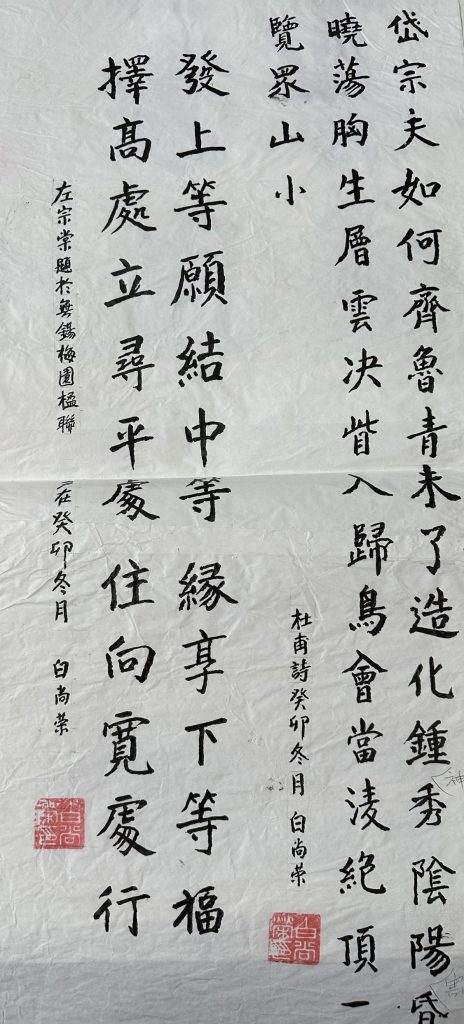 岱宗夫如何齊魯青未了造化鍾秀陰陽昏
神
曉蕩胸生層雲决眥入歸鳥會當淩絕頂一
覽眾山小
杜甫詩癸卯冬月 白尚荣
白尚榮印
發上等願結中等緣享下等福
擇高處立尋平處住向寬處行
左宗棠題於無錫梅園楹聯 在癸卯冬月 白尚荣
白尚榮印